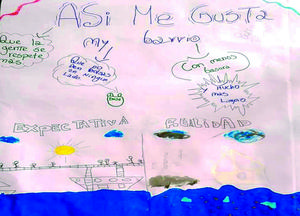 ASi Me GusTa
my barrio
Que la
gente se
respete
mas.
Que no
Den bolsas
en ningun
Lado
Con menos
basura
y
Mucho
mas
Limpio
EXPECTATIVA
REALIDAD